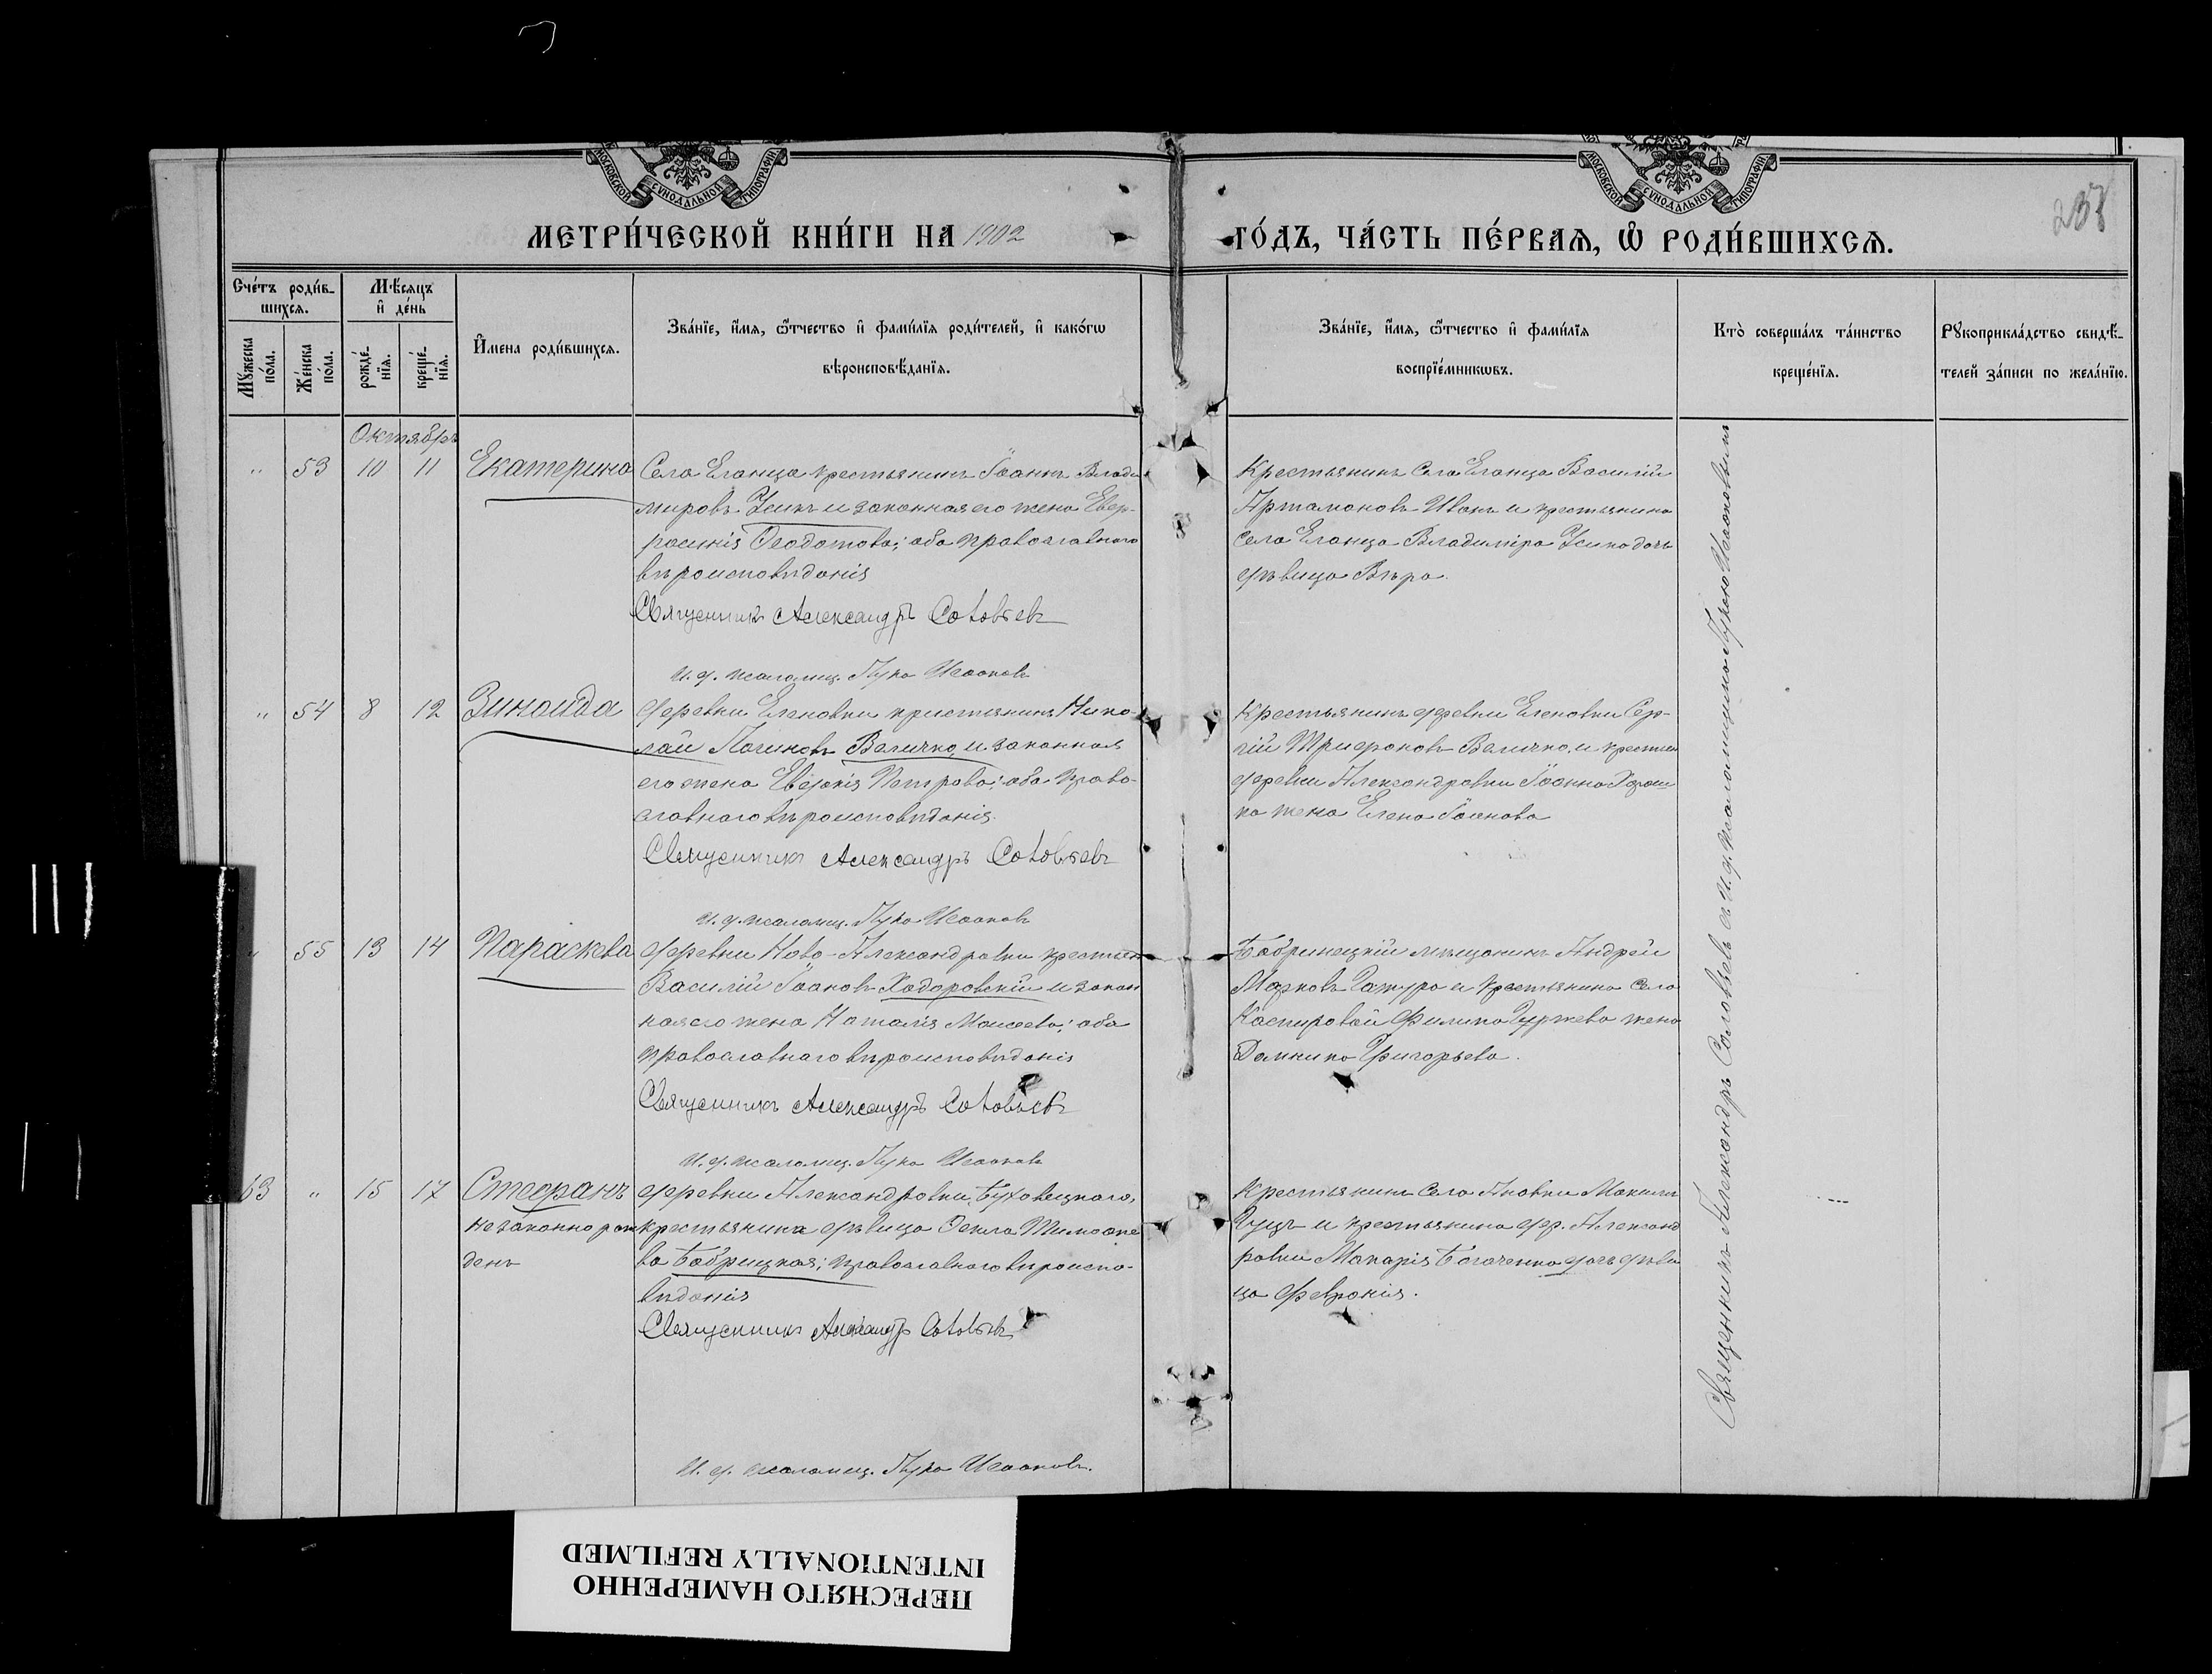 МОСКОВСКОЙ СѴНОДАЛЬНОЙ ТИПОГРАФІИ
МОСКОВСКОЙ СѴНОДАЛЬНОЙ ТИПОГРАФІИ
238
МЕТРИ́ЧЕСКОЙ КНИ́ГИ НА 1902
ГО́ДЪ, ЧА́СТЬ ПЕ́РВАѦ, Ѡ РОДИ́ВШИХСѦ.
Сче́тъ роди́в-
шихсѧ.
Мѣсяцъ
и де́нь
Мꙋжеска
по́ла.
Же́нска
по́ла.
рожде́-
нїѧ.
креще́-
нїѧ.
И҆мена роди́вшихсѧ.
Зва́нїе, и҆́мѧ, ѻ҆́тчество и҆ фами́лїѧ роди́телей, и҆ како́гѡ
вѣроисповѣ́данїѧ.
Зва́нїе, и҆́мѧ, ѻ҆́тчество и҆ фами́лїѧ
воспрїе́мникѡвъ.
Кто̀ соверша́лъ та́инство
креще́нїѧ.
Рꙋкоприкла́дство свидѣ́-
телей за́писи по жела́нїю.
Октябрь
" 53 10 11 Екатерина
Села Еланца крестьянинъ Іоаннъ Влади-
мировъ Усикъ и законная его жена Евф-
росинія Ѳеодотова; оба православнаго
вѣроисповѣданія
Священникъ Александръ Соловьевъ
И. д. псаломщ. Лука Исааковъ
Крестьянинъ села Еланца Василій
Артамоновъ Иванъ и крестьянина
села Еланца Владиміра Усика дочь
дѣвица Вѣра.
" 54 8 12 Зинаида
деревни Еленовки крестьянинъ Нико-
лай Логиновъ Величко, и законная
его жена Евдокія Петрова; оба право-
славнаго вѣроисповѣданія.
Священникъ Александръ Соловьевъ
И. д. псаломщ. Лука Исааковъ
Крестьянинъ деревни Еленовки Сер-
гій Трифоновъ Величко, и крестьян
деревни Александровки Іоанна
ка жена Елена Іоанова
" 55 13 14 Параскева
деревни Ново-Александровки крестьян
Василій Іоановъ Ходоровскій и закон
ная его жена Наталія Моисеева; оба
православнаго вѣроисповѣданія
Священникъ Александръ Соловьевъ
И. д. псаломщ. Лука Исааковъ
Бобринецкій мѣщанинъ Андрей
Марковъ и крестьянина села
Каспировой Филипа жена
Домникa Григорьева.
63 " 15 17 Стефанъ
незаконно рож
денъ
деревни Александровки, Буховецкаго,
крестьянина дѣвица Ѳекла Тимофе
ва Бобрицкая; православнаго вѣроиспо-
вѣданія
Священникъ Александръ Соловьевъ
И. д. псаломщ. Лука Исааковъ.
Крестьянинъ села Ановки Максимъ
Гуцъ и крестьянина дер. Александ
ровки Макарія Богаченка дочь дѣви
ца Февронія.
Священникъ Александръ Соловьевъ съ И. д. псаломщика Лукою Исааковымъ
ПЕРЕСНЯТО НАМЕРЕННО
INTENTIONALLY REFILMED